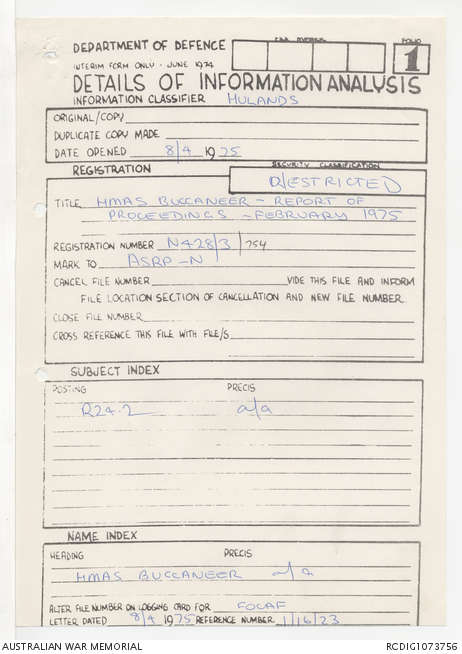 DEPARTMENT OF DEFENCE
FILE NUMBER
FOLIO
1
INTERIM FORM ONLY - JUNE 1974
DETAILS OF INFORMATION ANALYSIS
INFORMATION CLASSIFIER HULANDS
ORIGINAL/COPY
DUPLICATE COPY MADE
DATE OPENED 8/4 1975
REGISTRATION
SECURITY CLASSIFICATION
RESTRICTED
TITLE HMAS BUCCANEER - REPORT OF
PROCEEDINGS - FEBRUARY 1975
REGISTRATION NUMBER N428/3/754
MARK TO ASRP-N
CANCEL FILE NUMBER VIDE THIS FILE AND INFORM
FILE LOCATION SECTION OF CANCELLATION AND NEW FILE NUMBER
CLOSE FILE NUMBER
CROSS REFERENCE THIS FILE WITH FILE/S
SUBJECT INDEX
POSTING PRECIS
R24.2 a/a
NAME INDEX
HEADING PRECIS
HMAS BUCCANEER a/a
ALTER FILE NUMBER ON LOGGING CARD FOR FOCAF
LETTER DATED 8/4 1975 REFERENCE NUMBER 1/16/23
AUSTRALIAN WAR MEMORIAL
RCDIG1073756